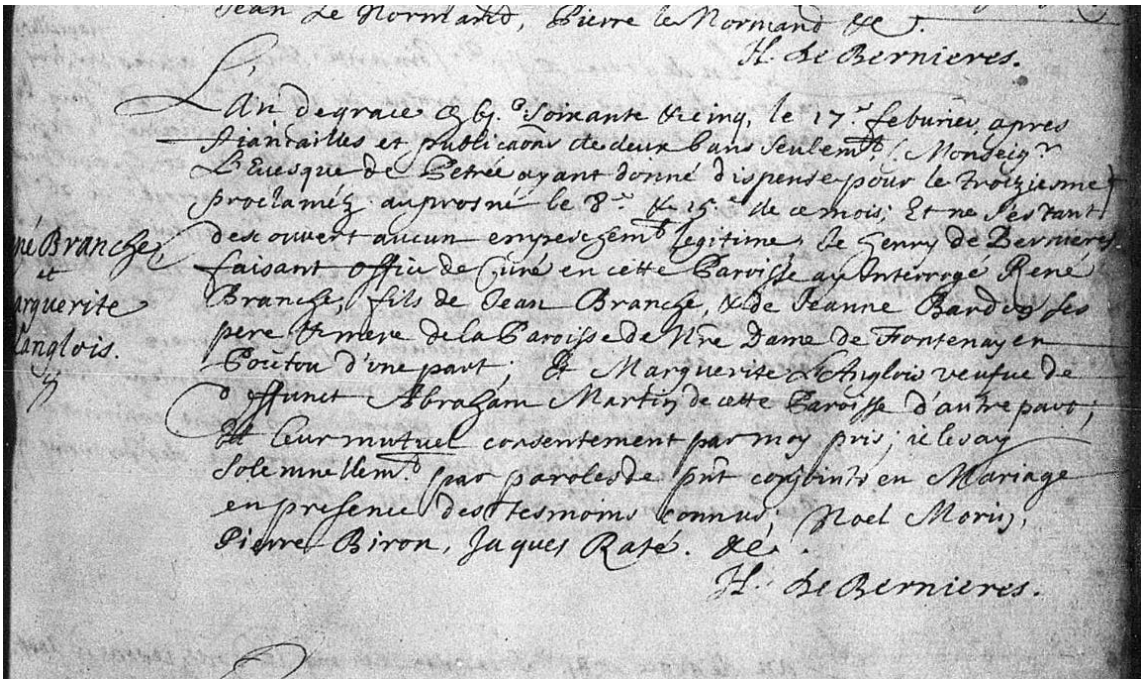 Jean Le Normand, Pierre le Normand &c.
H. de Bernieres.
L'An de grace soixante & cinq, le 17.e feburier, apres
fiancailles et publicaōns de deux bans seulem.t (Monseig.r
L'Evesque de Petrée ayant donné dispense pour le troiziesme)
proclaméz au prosne le 8.e & 15.e de ce mois; Et ne s'estant
descouvert aucun empeschem.t legitime, Je Henry de Bernieres
faisant office de Curé en cette Paroisse ay Interrogé René
Branche, fils de Jean Branche, & de Jeanne Bardin ses
pere & mere de la Paroisse de Nre Dame de Fontenay en
Poitou d'une part; Et Marguerite L'Anglois veufve de
deffunct Abraham Martin de cette Paroisse d'autre part;
Et leur mutuel consentement par moy pris; ie les ay
solemnellem.t par paroles de pn̄t conjoints en Mariage
en presence des tesmoins connus; Noel Morin,
Pierre Biron, Jaques Raté. &c.
H. de Bernieres.
né Branche,
et
arguerite
Langlois.